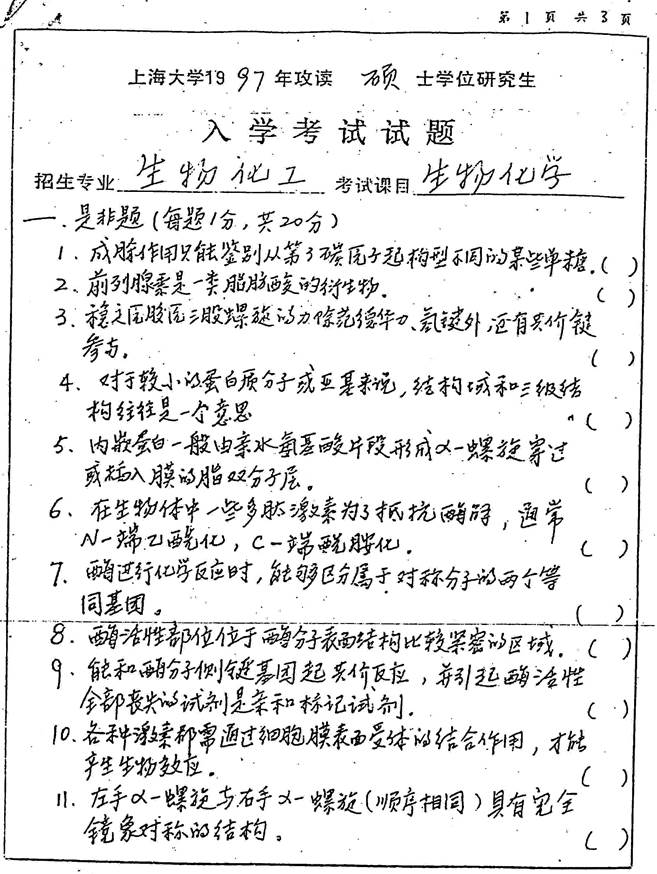 第1页共3页
上海大学1997年攻读 硕 士学位研究生
入学考试试题
招生专业 生物化工 考试课目 生物化学
一.是非题(每题1分,共20分)
1、成脎作用只能鉴别从第3碳原子起构型不同的某些单糖.( )
2、前列腺素是一类脂肪酸的衍生物. ( )
3、稳定原胶原三股螺旋的力除范德华力、氢键外,还有共价键
参与. ( )
4、对于较小的蛋白质分子或亚基来说,结构域和三级结
构往往是一个意思 ( )
5、内嵌蛋白一般由亲水氨基酸片段形成α-螺旋穿过
或插入膜的脂双分子层。 ( )
6、在生物体中一些多肽激素为了抵抗酶解,通常
N-端乙酰化,C-端酰胺化. ( )
7、酶进行化学反应时,能够区分属于对称分子的两个等
同基团。 ( )
8、酶活性部位位于酶分子表面结构比较紧密的区域. ( )
9、能和酶分子侧链基团起共价反应,并引起酶活性
全部丧失的试剂是亲和标记试剂. ( )
10、各种激素都需通过细胞膜表面受体的结合作用,才能
产生生物效应。 ( )
11、左手α-螺旋与右手α-螺旋(顺序相同)具有完全
镜象对称的结构。 ( )